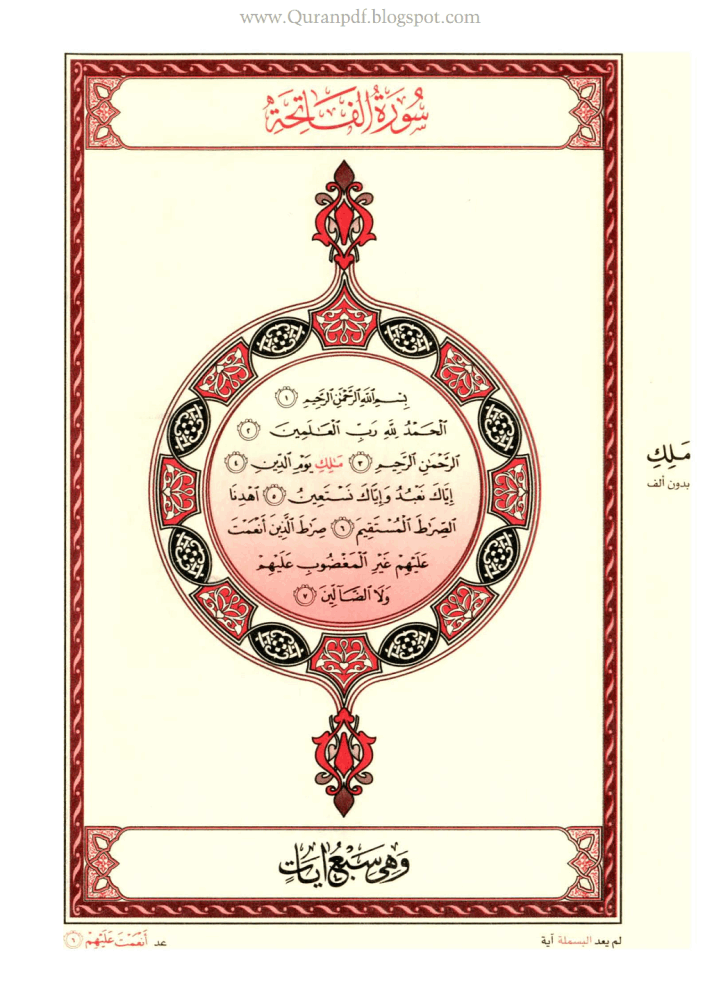 www.Quranpdf.blogspot.com
سُورَةُ الفَاتِحَةِ
بِسْمِ ٱللَّهِ ٱلرَّحْمَٰنِ ٱلرَّحِيمِ ١
ٱلْحَمْدُ لِلَّهِ رَبِّ ٱلْعَٰلَمِينَ ٢
ٱلرَّحْمَٰنِ ٱلرَّحِيمِ ٣ مَٰلِكِ يَوْمِ ٱلدِّينِ ٤
إِيَّاكَ نَعْبُدُ وَإِيَّاكَ نَسْتَعِينُ ٥ ٱهْدِنَا
ٱلصِّرَٰطَ ٱلْمُسْتَقِيمَ ٦ صِرَٰطَ ٱلَّذِينَ أَنْعَمْتَ
عَلَيْهِمْ غَيْرِ ٱلْمَغْضُوبِ عَلَيْهِمْ
وَلَا ٱلضَّآلِّينَ ٧
مَلِكِ
بدون ألف
وَهِيَ سَبْعُ آيَاتٍ
لم يعد البسملة آية
عد أَنْعَمْتَ عَلَيْهِمْ ٦